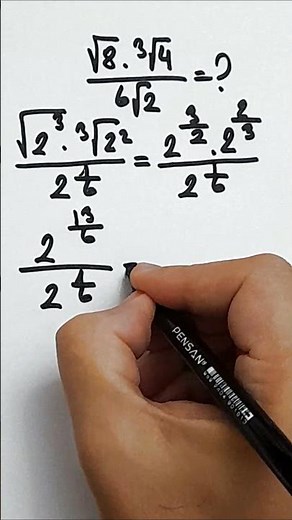 √8 · ³√4 / ⁶√2 = ?
√2³ · ³√2² / 2^(1/6) = 2^(3/2) · 2^(2/3) / 2^(1/6)
2^(13/6) / 2^(1/6)
PENSAN